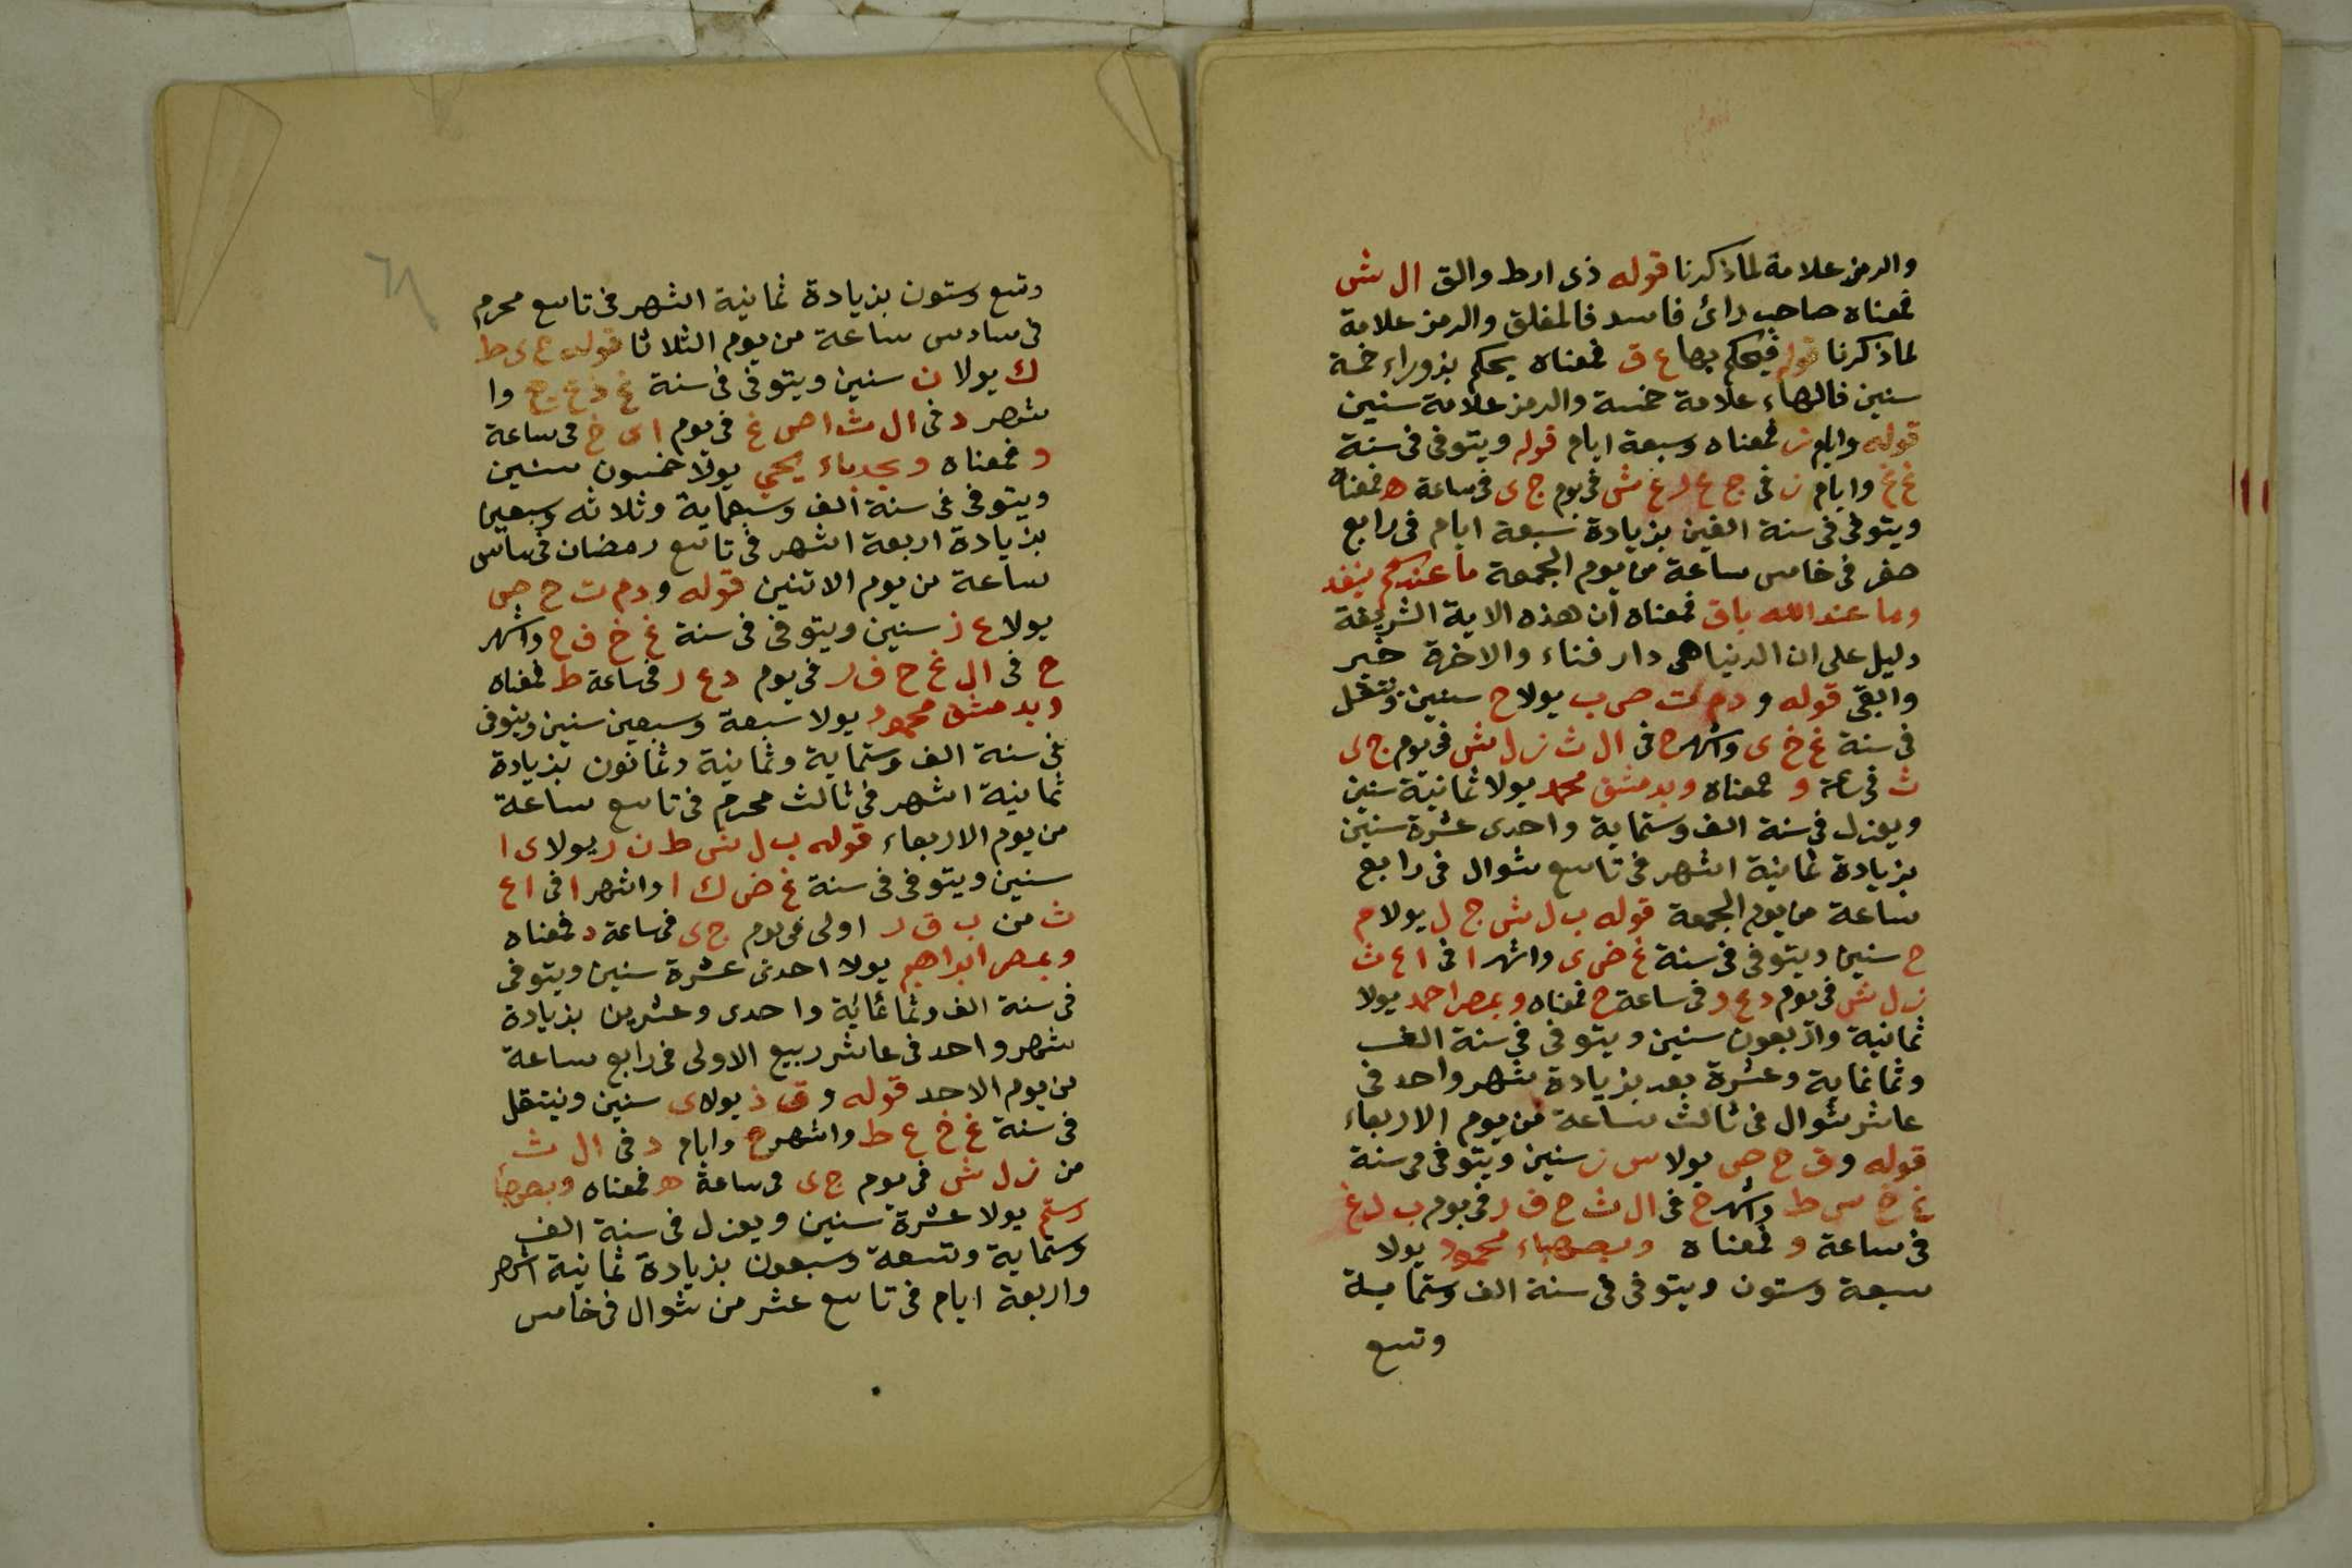 والرمز علامة لما ذكرنا قوله ذى ارط والق ال ش
فمعناه صاحب رائ فاسد فالمغلق والرمز علامة
لما ذكرنا قوله فيحكم بها ع ق فمعناه يحكم بزوراء خمة
سنين فالهاء علامة خمسة والرمز علامة سنين
قوله وايام ز فمعناه وسبعة ايام قوله ويتوفى فى سنة
غ غ وايام ز فى ج ع ر غ ش فى يوم ج ى فى ساعة ه فمعناه
ويتوفى فى سنة الفين بزيادة سبعة ايام فى رابع
صفر فى خامس ساعة من يوم الجمعة ما عندكم ينفد
وما عند الله باق فمعناه ان هذه الاية الشريفة
دليل على ان الدنيا هى دار فناء والاخرة خير
وابقى قوله و دم ت ص ب يولا ح سنين وينتقل
فى سنة غ خ ى واشهر ح فى ال ث ز ل ش فى يوم ج ى
ث فى ساعة و فمعناه وبدمشق محمد يولا ثمانية سنين
ويعزل فى سنة الف وستماية واحدى عشرة سنين
بزيادة ثمانية اشهر فى تاسع شوال فى رابع
ساعة من يوم الجمعة قوله ب ل ش ج ل يولا م
ح سنين ويتوفى فى سنة غ ض ى واشهر ا فى ا ع ث
ز ل ش فى يوم د ع ر فى ساعة ج فمعناه وبمصر احمد يولا
ثمانية واربعون سنين ويتوفى فى سنة الف
وثمانماية وعشرة بعد بزيادة شهر واحد فى
عاشر شوال فى ثالث ساعة من يوم الاربعاء
قوله و ق ح ص يولا س ز سنين ويتوفى فى سنة
غ خ س ط واشهر ح فى ال ث ح ف ر فى يوم ب ل غ
فى ساعة و فمعناه محمود يولا
سبعة وستون ويتوفى فى سنة الف وستماية
وتسع
وتسع وستون بزيادة ثمانية اشهر فى تاسع محرم
فى سادس ساعة من يوم الثلاثا قوله ع ى ط
ك يولا ن سنين ويتوفى فى سنة غ ذ ع ج وا
شهر د فى ال ث ا ص غ فى يوم ا ى خ فى ساعة
و فمعناه يحيى يولا خمسون سنين
ويتوفى فى سنة الف وسبعماية وثلاثه وسبعين
بزيادة اربعة اشهر فى تاسع رمضان فى سادس
ساعة من يوم الاثنين قوله و دم ت ح ص
يولا ع ز سنين ويتوفى فى سنة غ خ ف ح واشهر
ح فى ال غ ح ف ر فى يوم د ع ر فى ساعة ط فمعناه
وبدمشق محمود يولا سبعة وسبعين سنين ويتوفى
فى سنة الف وستماية وثمانية وثمانون بزيادة
ثمانية اشهر فى ثالث محرم فى تاسع ساعة
من يوم الاربعاء قوله ب ل ش ط ن ر يولا ى ا
سنين ويتوفى فى سنة غ ض ك ا واشهر ا فى ا ع
ث من ب ق ر اولى فى يوم ج ى فى ساعة د فمعناه
وبمصر ابراهيم يولا احدى عشرة سنين ويتوفى
فى سنة الف وثمانماية واحدى وعشرين بزيادة
شهر واحد فى عاشر ربيع الاولى فى رابع ساعة
من يوم الاحد قوله و ق ذ يولا ى سنين وينتقل
فى سنة غ خ ع ط واشهر ح وايام د فى ال ث
من ز ل ش فى يوم ج ى فى ساعة ه فمعناه
رستم يولا عشرة سنين ويعزل فى سنة الف
وستماية وتسعة وسبعون بزيادة ثمانية اشهر
واربعة ايام فى تاسع عشر من شوال فى خامس